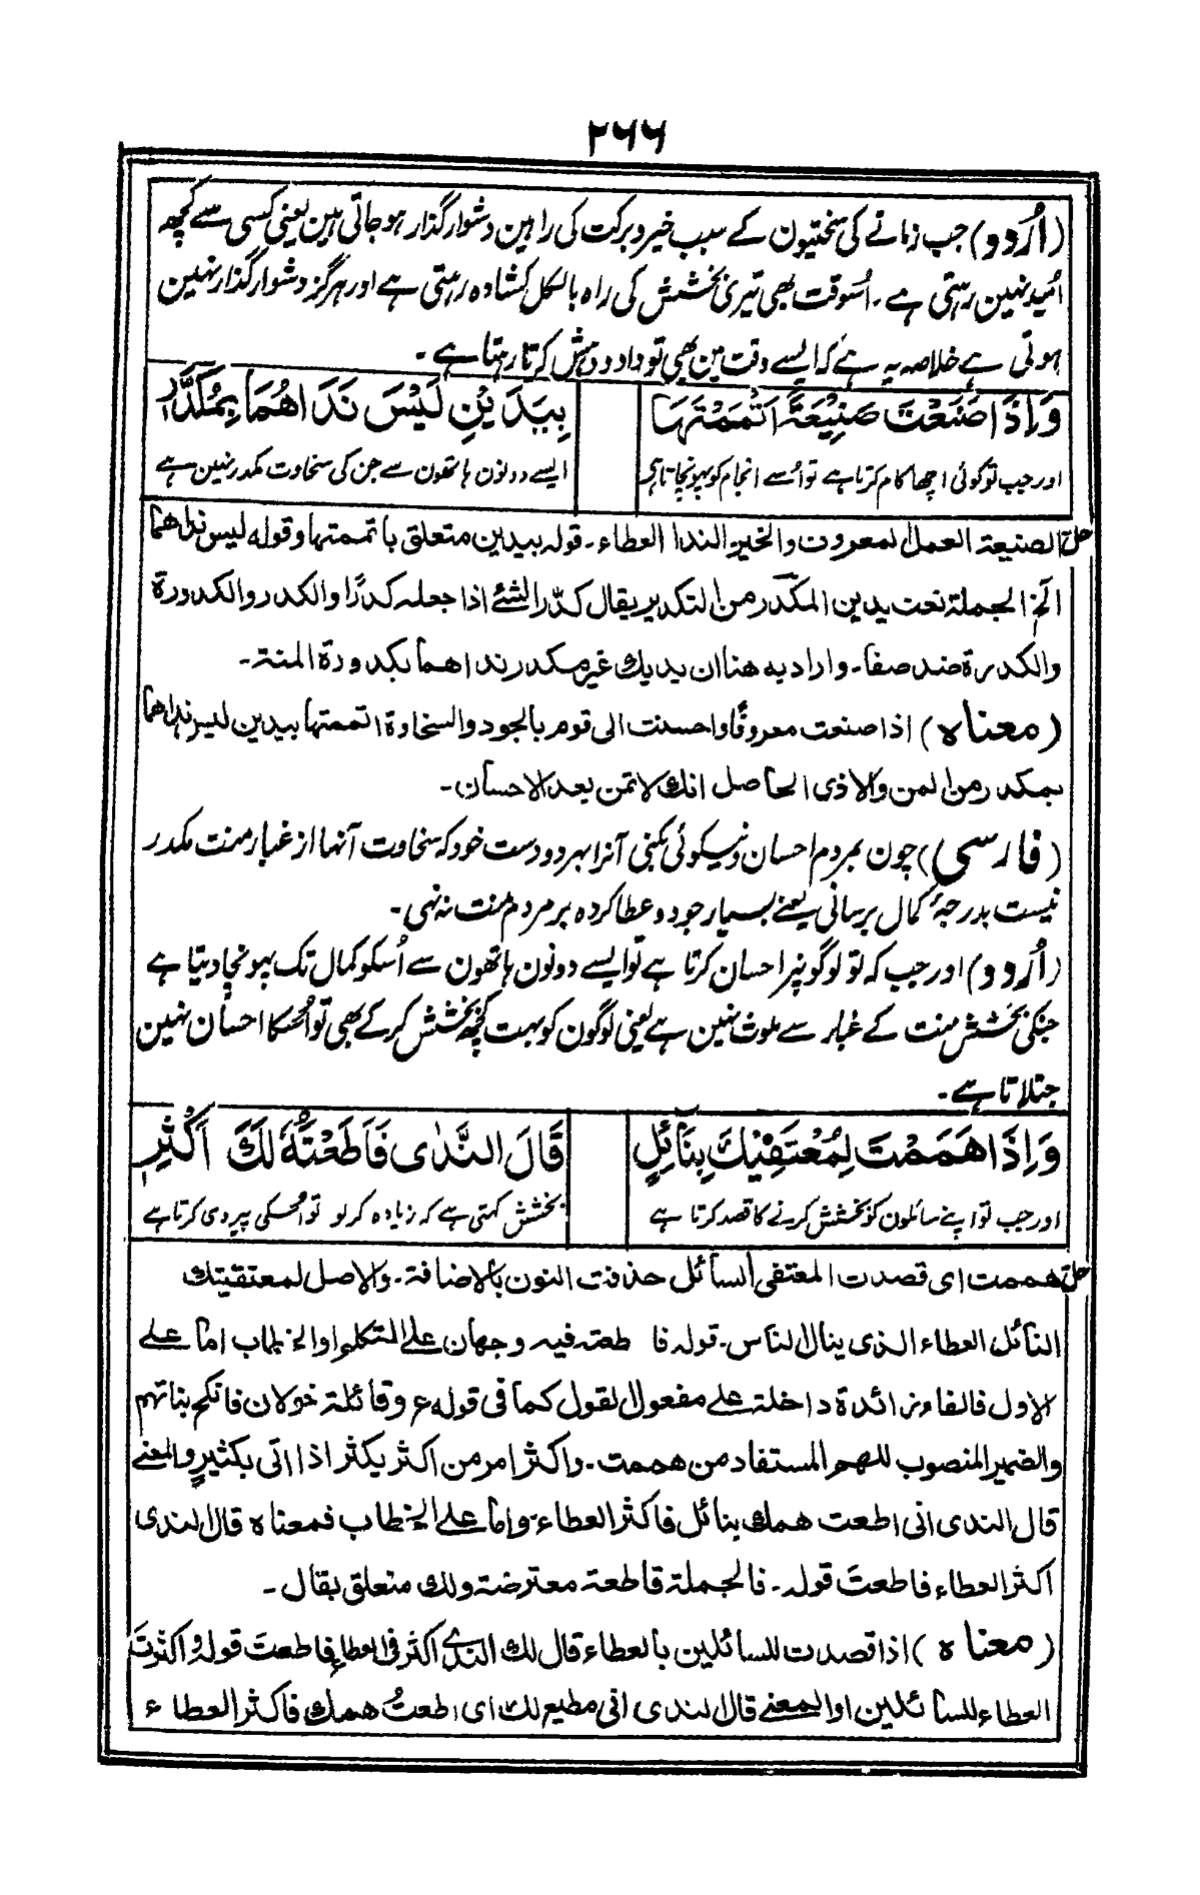 ۲۶۶
(اُردو) جب زمانے کی سختیون کے سبب خیر و برکت کی راہین دشوار گذار ہو جاتی ہین یعنی کسی سے کچھ
امید نہین رہتی ہے۔ اسوقت بھی تیری بخشش کی راہ بالکل کشادہ رہتی ہے اور ہرگز دشوار گذار نہین
ہوتی ہے خلاصہ یہ ہے کہ ایسے وقت مین بھی تو داد و دہش کرتا رہتا ہے۔
وَاِذَا صَنَعْتَ صَنِيْعَةً اَتْمَمْتَهَا بِيَدَيْنِ لَيْسَ نَدَاهُمَا بِمُكَدَّرٖ
اور جب تو کوئی اچھا کام کرتا ہے تو اُسے انجام کو پہونچاتا ہی ایسے دونون ہاتھون سے جن کی سخاوت مکدر نہین ہے
حل الصنیعۃ العمل المعروف والخیر الندا العطاء۔ قولہ بیدین متعلق باتممتها وقولہ لیس نداهما
الخ الجملۃ نعت یدین المکدّر من التکدیر یقال کدّر الشئے اذا جعلہ کدرًا والکدر والکدورۃ
والکدرۃ ضد صفا۔ واراد بہ هنا ان یدیك غیر مکدر نداهما بکدورۃ المنۃ۔
(معناه) اذا صنعت معروفًا واحسنت الی قوم بالجود والسخاوۃ اتممتها بیدین لیس نداهما
بمکدر من المن والاذی الحاصل انك لا تمن بعد الاحسان۔
(فارسی) چون بمردم احسان و نیکوئی بکنی آنرا بہر دو دست خود کہ سخاوت آنہا از غبار منت مکدر
نیست بدرجۂ کمال برسانی یعنے بسیار جود و عطا کردہ بر مردم منت نہ نہی۔
(اُردو) اور جب کہ تو لوگونپر احسان کرتا ہے تو ایسے دونون ہاتھون سے اُسکو کمال تک پہونچا دیتا ہے
جنکی بخشش منت کے غبار سے ملوث نہین ہے یعنی لوگون کو بہت کچھ بخشش کرکے بھی تو اُسکا احسان نہین
جتلاتا ہے۔
وَاِذَا هَمَمْتَ لِمُعْتَفِيْكَ بِنَائِلٍ قَالَ النَّدٰى فَاَطَعْتَهٗ لَكَ اَكْثِرٖ
اور جب تو اپنے سائلون کو بخشش کرنے کا قصد کرتا ہے بخشش کہتی ہے کہ زیادہ کر لو تو اُسکی پیروی کرتا ہے
حل هممت ای قصدت المعتفی السائل حذفت النون بالاضافۃ۔ والاصل لمعتفیتك
النائل العطاء الذی ینال الناس۔ قولہ فاطعتہ فیہ وجهان علی التکلم او الخطاب اما علے
الاول فالفاء زائدۃ داخلۃ علے مفعول القول کما فی قولہ ع وقائلۃ خولان فانکح بناتهم
والضمیر المنصوب للهم المستفاد من هممت۔ واکثر امر من اکثر یکثر اذا اتی بکثیرٍ والمعنے
قال الندی انی اطعت همك بنائل فاکثر العطاء۔ واما علے الخطاب فمعناه قال الندی
اکثر العطاء فاطعتَ قولہ۔ فالجملۃ فاطعتہ معترضۃ ولك متعلق بقال۔
(معناه) اذا قصدت للسائلین بالعطاء قال لك الندے اکثر فی العطاء فاطعتَ قولہ واکثرتَ
العطاء للسائلین او المعنے قال الندی انی مطیع لك ای اطعتُ همك فاکثر العطاء